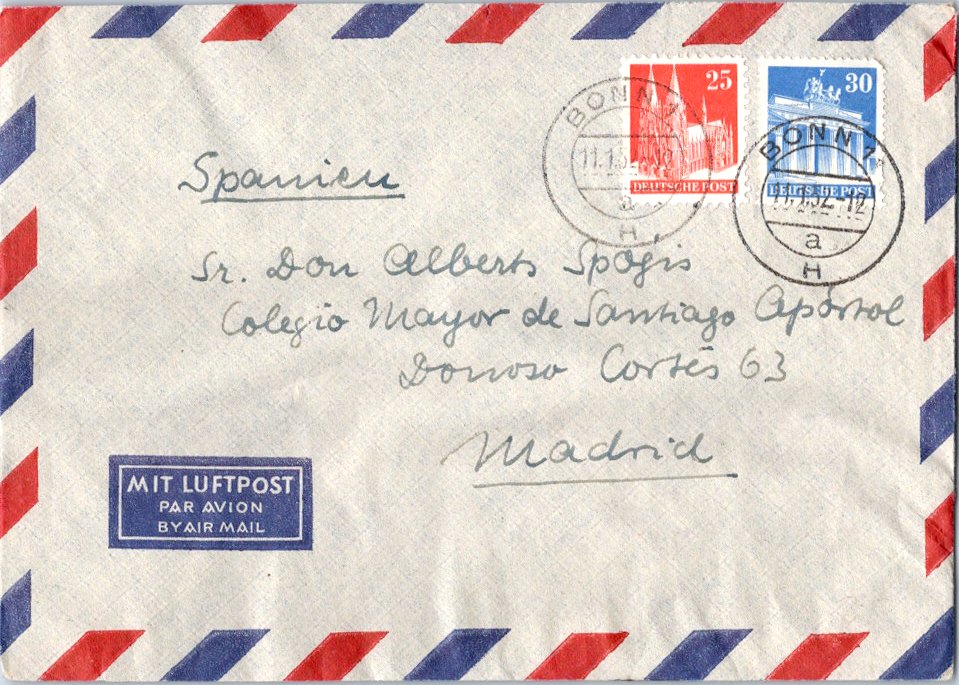 25
30
DEUTSCHE POST
DEUTSCHE POST
BONN 1
a
H
BONN 1
11.1.52.-12
a
H
Spanien
Sr. Don Alberto
Colegio Mayor de Santiago Apóstol
Donoso Cortés 63
Madrid
MIT LUFTPOST
PAR AVION
BY AIR MAIL